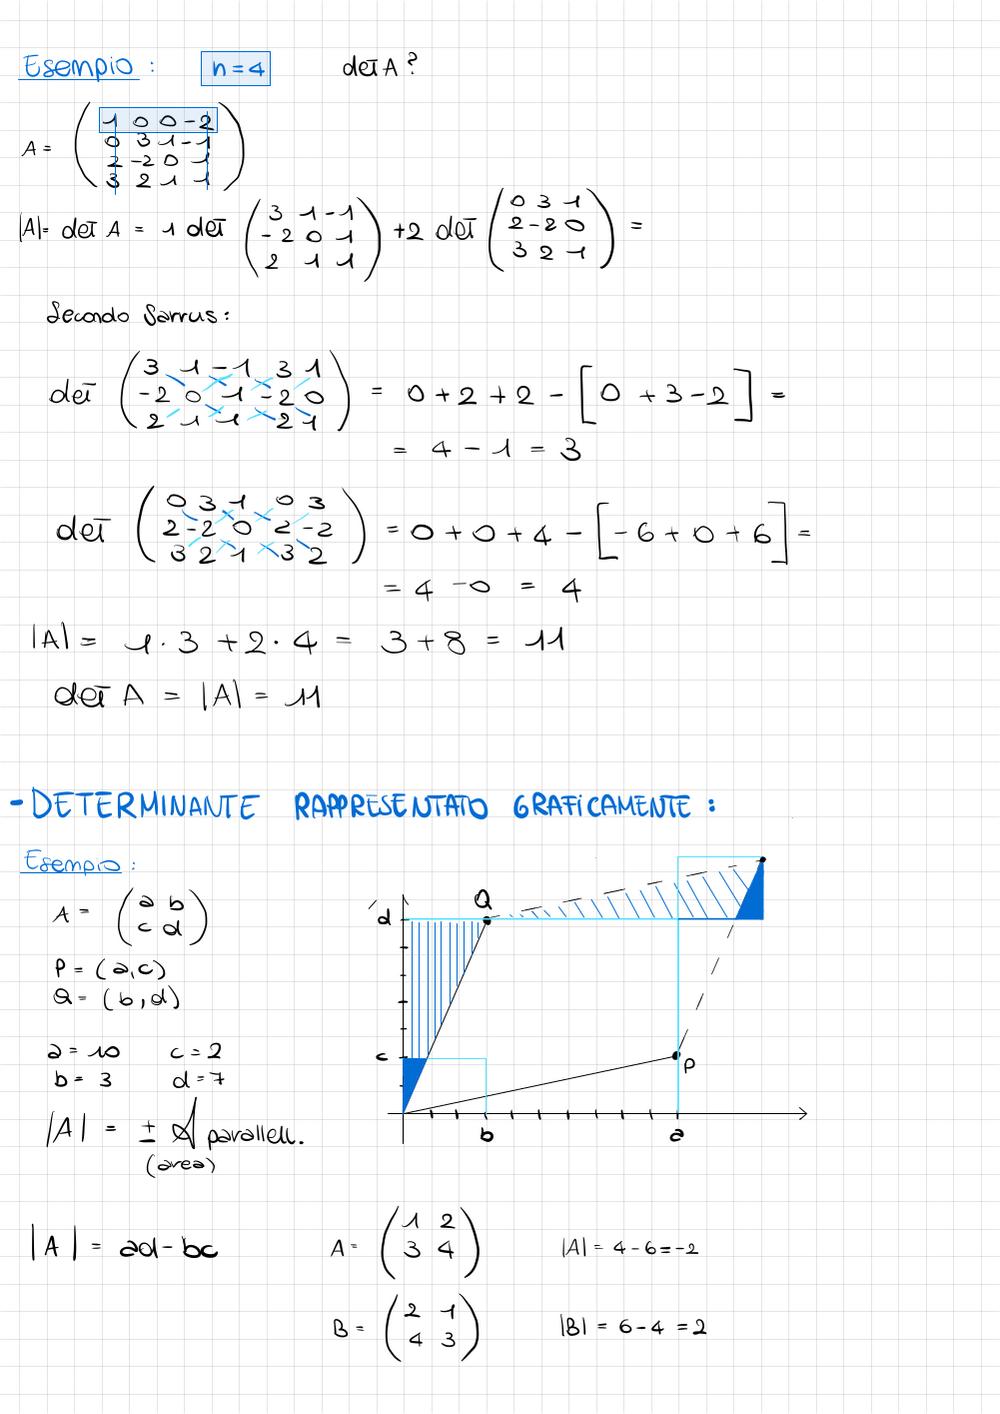 Esempio : n=4 det A ?
A = ( 1 0 0 -2
0 3 1 -1
2 -2 0 1
3 2 1 1 )
|A|= det A = 1 det ( 3 1 -1
-2 0 1
2 1 1 ) +2 det ( 0 3 1
2 -2 0
3 2 1 ) =
Secondo Sarrus:
det ( 3 1 -1 3 1
-2 0 1 -2 0
2 1 1 2 1 ) = 0+2+2 - [ 0 +3-2 ] =
= 4 - 1 = 3
det ( 0 3 1 0 3
2 -2 0 2 -2
3 2 1 3 2 ) = 0+0+4 - [ -6+0+6 ] =
= 4 -0 = 4
|A| = 1·3 +2·4 = 3+8 = 11
det A = |A| = 11
- DETERMINANTE RAPPRESENTATO GRAFICAMENTE :
Esempio :
A = ( a b
c d )
P = (a,c)
Q = (b,d)
a = 10 c = 2
b = 3 d = 7
|A| = ± A parallel.
(area)
Q
d
c
P
b a
|A| = ad-bc
A = ( 1 2
3 4 ) |A| = 4-6=-2
B = ( 2 1
4 3 ) |B| = 6-4 =2